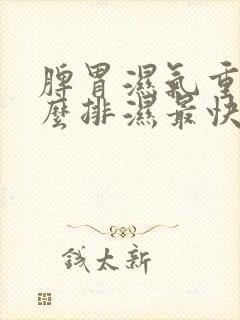 脾胃濕氣重
麼排濕最快
錢太新